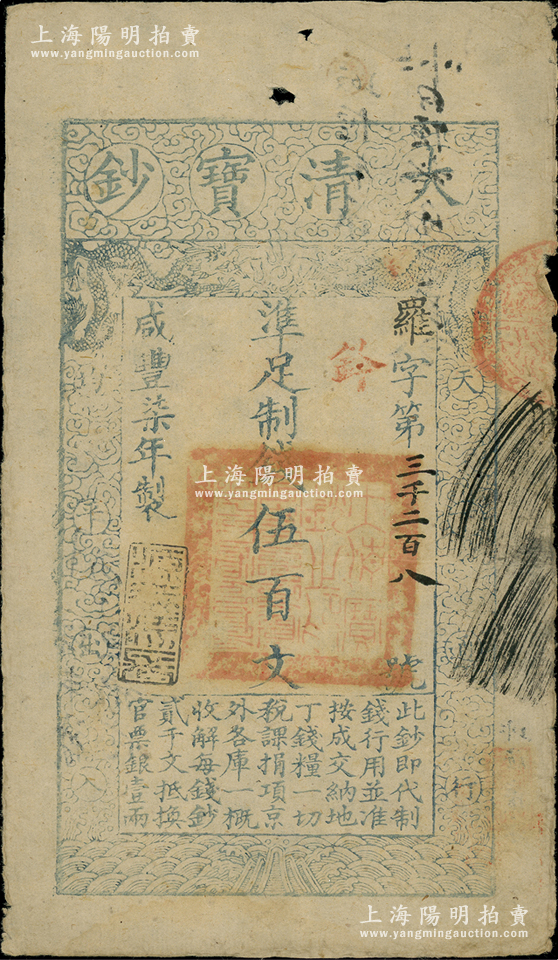 上海陽明拍賣
www.yangmingauction.com
大清寶鈔
羅字第三千二百八號
鈴
準足制錢伍百文
咸豐柒年製
天
行
平
出
入
此鈔即代制
錢行用並准
按成交納地
丁錢糧一切
稅課捐項京
外各庫一概
收解每錢鈔
貳千文抵換
官票銀壹兩
上海陽明拍賣
www.yangmingauction.com
上海陽明拍賣
www.yangmingauction.com